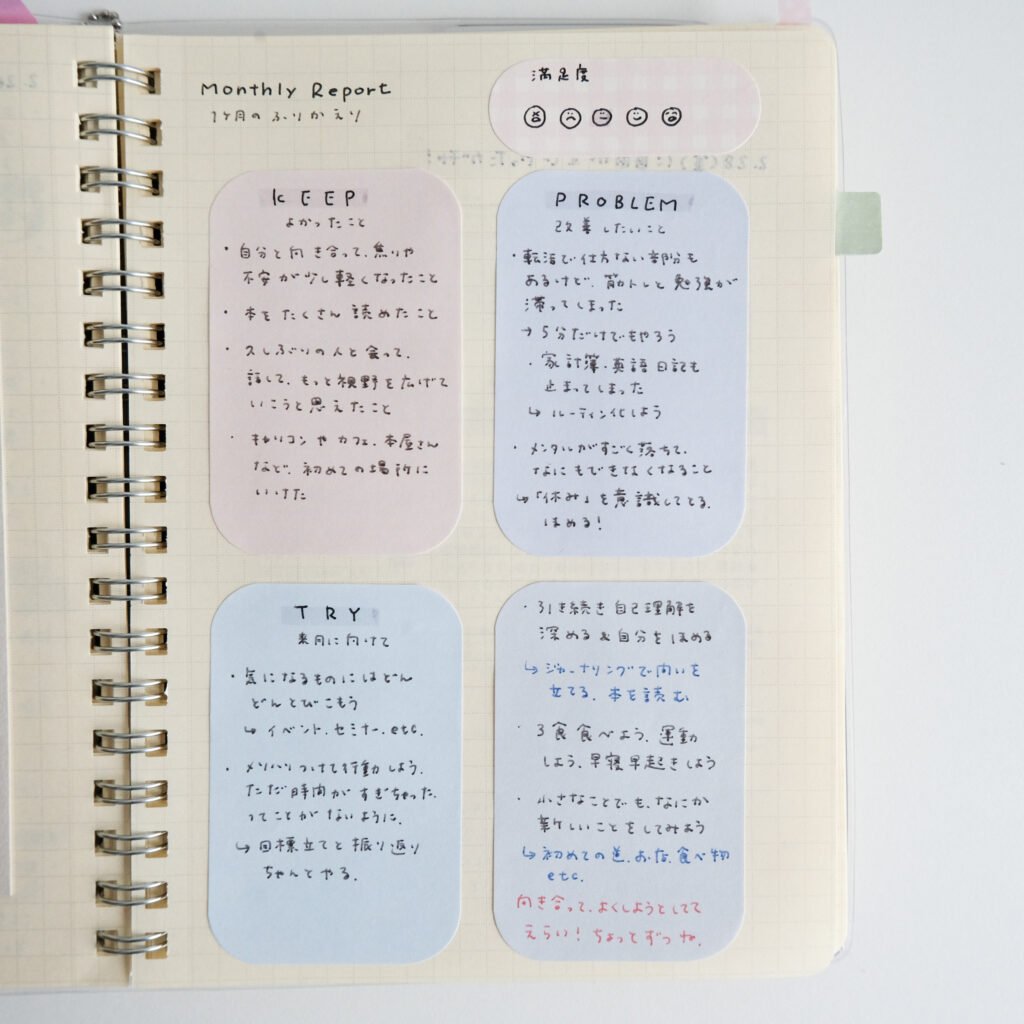 Monthly Report
1ヶ月のふりかえり
満足度
KEEP
よかったこと
・自分と向き合って、焦りや
不安が少し軽くなったこと
・本をたくさん読めたこと
・久しぶりの人と会って、
話して、もっと視野を広げて
いこうと思えたこと
・キャリコンやカフェ、本屋さん
など、初めての場所に
いけた
PROBLEM
改善したいこと
・転活で仕方ない部分も
あるけど、筋トレと勉強が
滞ってしまった
→5分だけでもやろう
・家計簿・英語日記も
止まってしまった
↳ルーティン化しよう
・メンタルがすごく落ちて、
なにもできなくなること
↳「休み」を意識してとる。
ほめる！
TRY
来月に向けて
・気になるものにはどん
どんとびこもう
↳イベント、セミナー、etc.
・メリハリつけて行動しよう。
ただ時間がすぎちゃった
ってことがないように。
↳目標立てと振り返り
ちゃんとやる。
・引き続き自己理解を
深める&自分をほめる
↳ジャーナリングで問いを
立てる、本を読む
・3食食べよう、運動
しよう、早寝早起きしよう
・小さなことでも、なにか
新しいことをしてみよう
↳初めての道、お店、食べ物
etc.
向き合って、よくしようとしてて
えらい！ちょっとずつね。